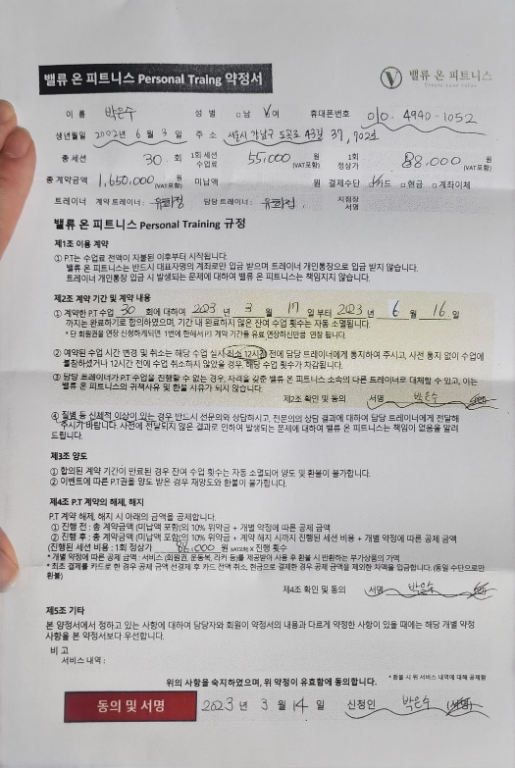 밸류 온 피트니스 Personal Traing 약정서
밸류 온 피트니스
이 름 박은수 성 별 □남 ☑여 휴대폰번호 010. 4940-1052
생년월일 2002년 6월 3일 주 소 서울시 강남구 도곡로 43길 37, 702호
총 세션 30 회 1회 세션 수업료 55,000 원 (VAT포함) 1회 정상가 88.000 원 (VAT포함)
총 계약금액 1,650,000 원 (VAT포함) 미납액 원 결제수단 ☑카드 □현금 □계좌이체
트레이너 계약 트레이너 : 유화정 담당 트레이너 : 유화정 지점장 서명
밸류 온 피트니스 Personal Training 규정
제1조 이용 계약
① P.T는 수업료 전액이 지불된 이후부터 시작됩니다.
밸류 온 피트니스는 반드시 대표자명의 계좌로만 입금 받으며 트레이너 개인통장으로 입금 받지 않습니다.
트레이너 개인통장 입금 시 발생되는 문제에 대하여 밸류 온 피트니스는 책임지지 않습니다.
제2조 계약 기간 및 계약 내용
① 계약한 P.T 수업 30 회에 대하여 2023 년 3 월 17 일 부터 2023 년 6 월 16 일
까지는 완료하기로 합의하였으며, 기간 내 완료하지 않은 잔여 수업 횟수는 자동 소멸됩니다.
* 단 회원권을 연장 신청하게되면 1번에 한해서 P.T 계약 기간을 유료 연장하신만큼 연장 됩니다.
② 예약된 수업 시간 변경 및 취소는 해당 수업 실시 최소 12시간 전에 담당 트레이너에게 통지하여 주시고, 사전 통지 없이 수업에
불참하였거나 12시간 전에 수업 취소하지 않았을 경우, 해당 수업 횟수가 차감됩니다.
③ 담당 트레이너가 P.T 수업을 진행할 수 없는 경우, 자격을 갖춘 밸류 온 피트니스 소속의 다른 트레이너로 대체할 수 있고, 이는
밸류 온 피트니스의 귀책사유 및 환불 사유가 되지 않습니다.
제2조 확인 및 동의 서명 박은수
④ 질병 등 신체적 이상이 있는 경우 반드시 전문의와 상담하시고, 전문의의 상담 결과에 대하여 담당 트레이너에게 전달해
주시기 바랍니다. 사전에 전달되지 않은 결과로 인하여 발생되는 문제에 대하여 밸류 온 피트니스는 책임이 없음을 알려
드립니다.
제3조 양도
① 합의된 계약 기간이 만료된 경우 잔여 수업 횟수는 자동 소멸되어 양도 및 환불이 불가합니다.
② 이벤트에 따른 P.T권을 양도 받은 경우 재양도와 환불이 불가합니다.
제4조 P.T 계약의 해제, 해지
P.T 계약 해제, 해지 시 아래의 금액을 공제합니다.
① 진행 전 : 총 계약금액 (미납액 포함)의 10% 위약금 + 개별 약정에 따른 공제 금액
② 진행 후 : 총 계약금액 (미납액 포함)의 10% 위약금 + 계약 해지 시까지 진행된 세션 비용 + 개별 약정에 따른 공제 금액
(진행된 세션 비용 : 1회 정상가 88.000 원 (VAT포함) X 진행 횟수
* 개별 약정에 따른 공제 금액 : 서비스 (회원권, 운동복, 라커 등)를 제공받아 사용 후 환불 시 반환하는 부가상품의 가액
* 최초 결제를 카드로 한 경우 공제 금액 선결제 후 카드 전액 취소, 현금으로 결제한 경우 공제 금액을 제외한 차액을 입금합니다. (동일 수단으로만
환불)
제4조 확인 및 동의 서명 박은수
제5조 기타
본 약정서에서 정하고 있는 사항에 대하여 담당자와 회원이 약정서의 내용과 다르게 약정한 사항이 있을 때에는 해당 개별 약정
사항을 본 약정서보다 우선합니다.
비 고
서비스 내역 :
* 환불 시 위 서비스 내역에 대해 공제함
위의 사항을 숙지하였으며, 위 약정이 유효함에 동의합니다.
동의 및 서명 2023 년 3 월 14 일 신청인 박은수 (서명)